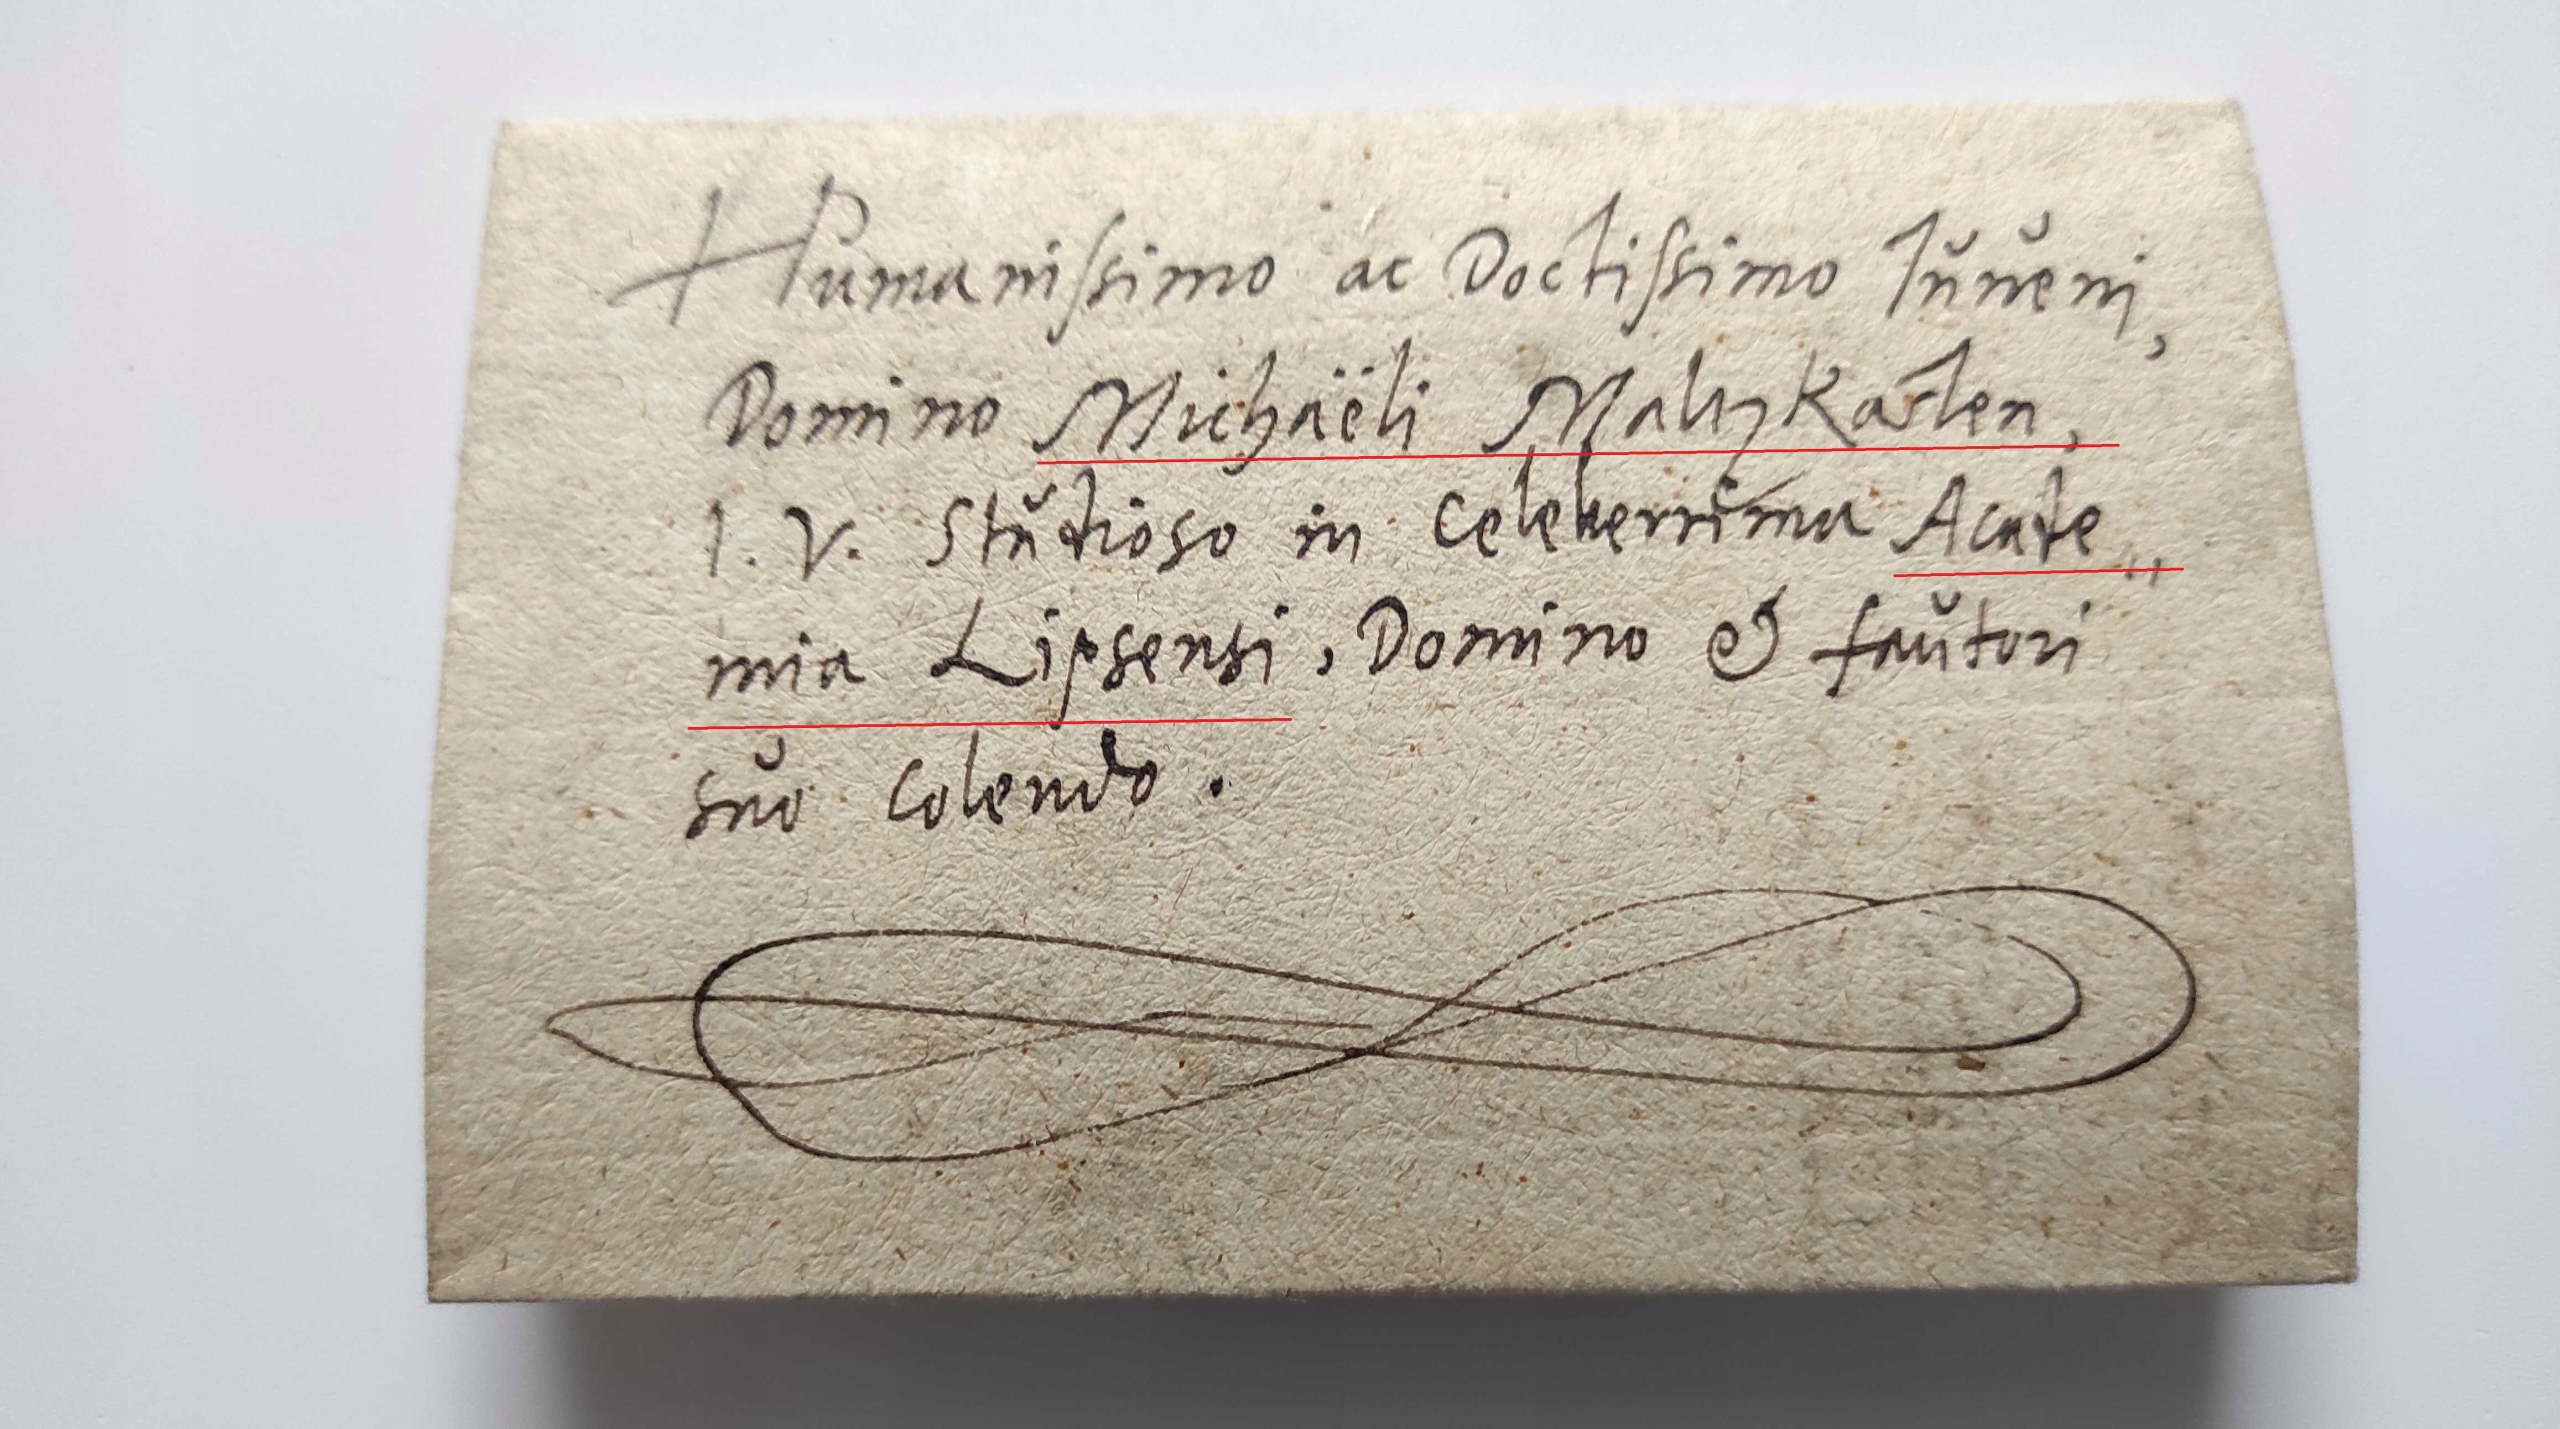 Humanissimo ac Doctissimo Iŭnĕni,
Domino Michaëli Maltzkasten,
I. V. Stŭdioso in celeberrima Acade„
mia Lipsensi, Domino & faŭtori
sŭo colendo.